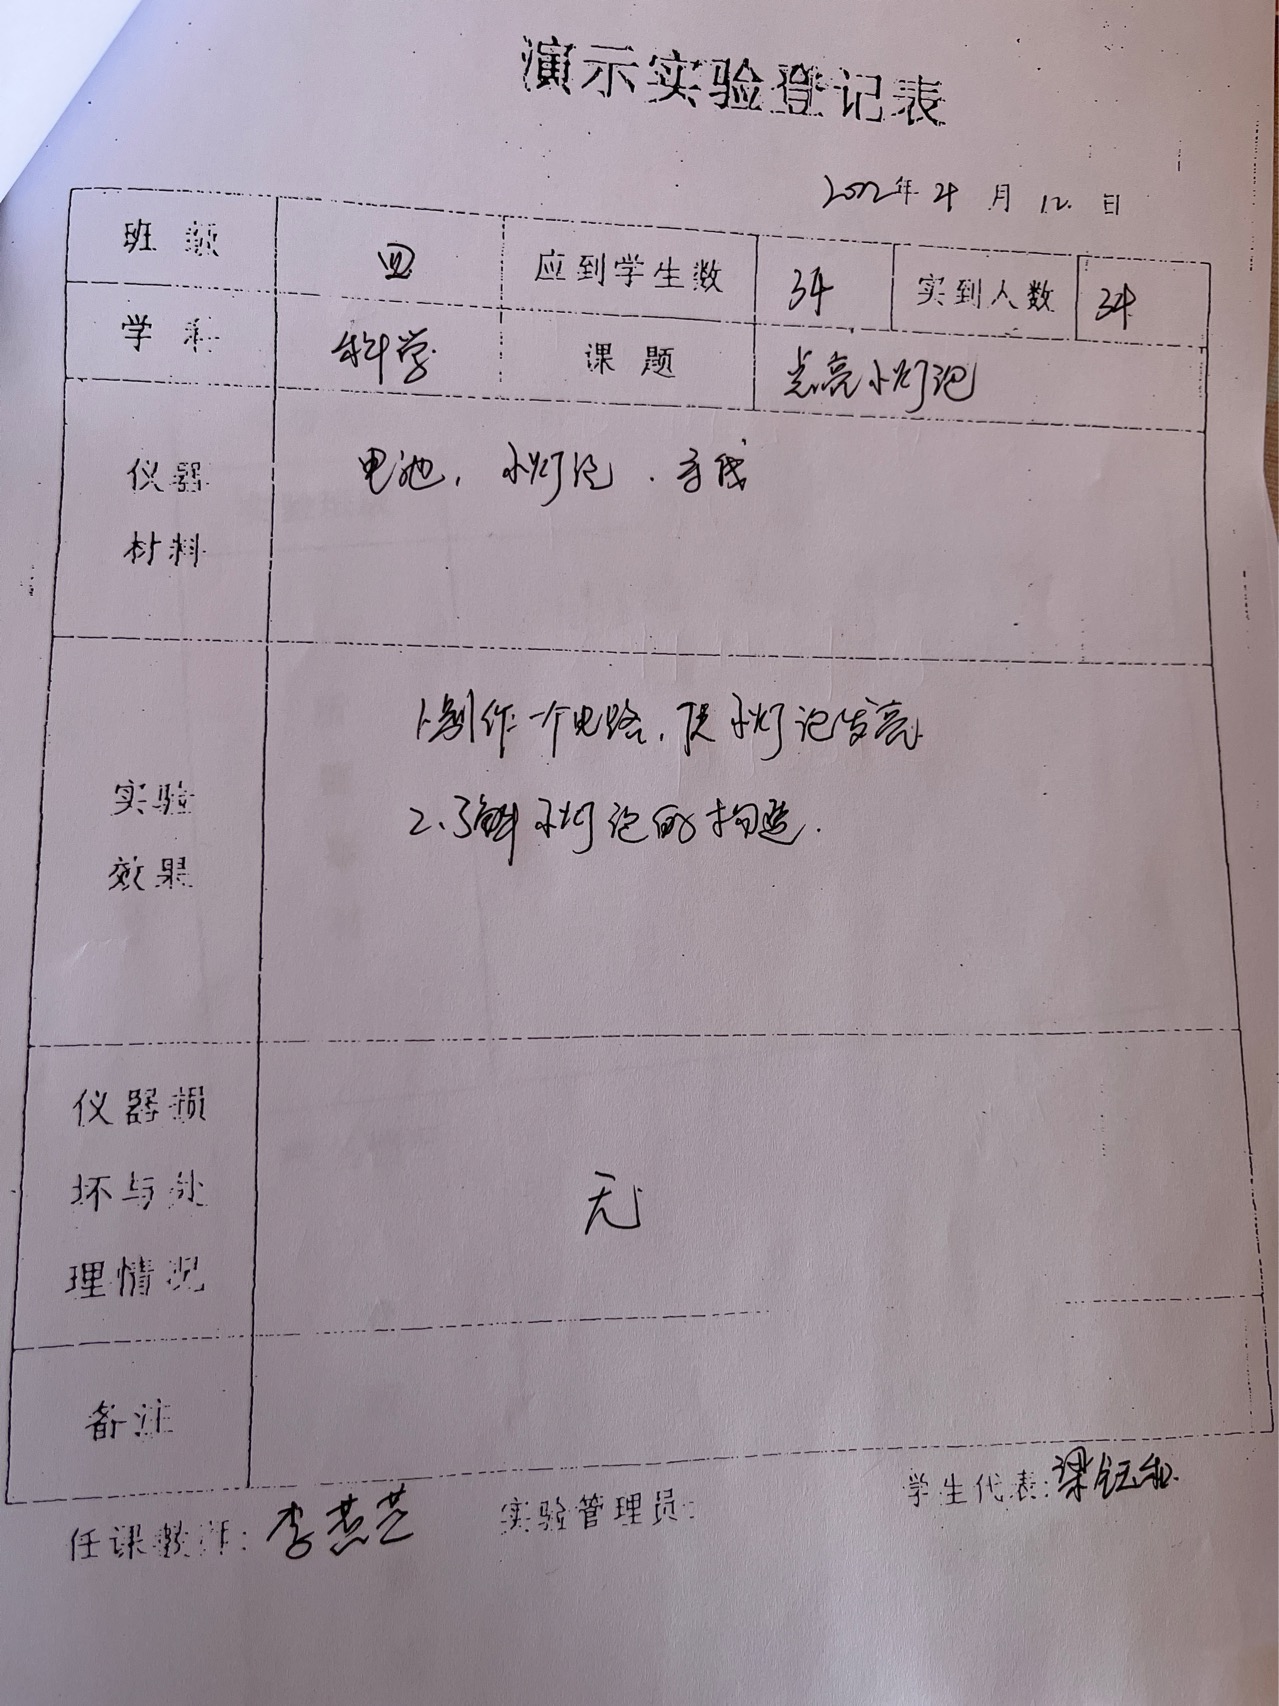 演示实验登记表
2022年4月12.日
班级 四 应到学生数 34 实到人数 34
学科 科学 课题 点亮小灯泡
仪器 电池,小灯泡.导线
材料
1.制作一个电路,使小灯泡发亮
2、了解小灯泡的构造.
实验
效果
仪器损
坏与处 无
理情况
备注
任课教师: 李燕芝 实验管理员: 学生代表:梁钰